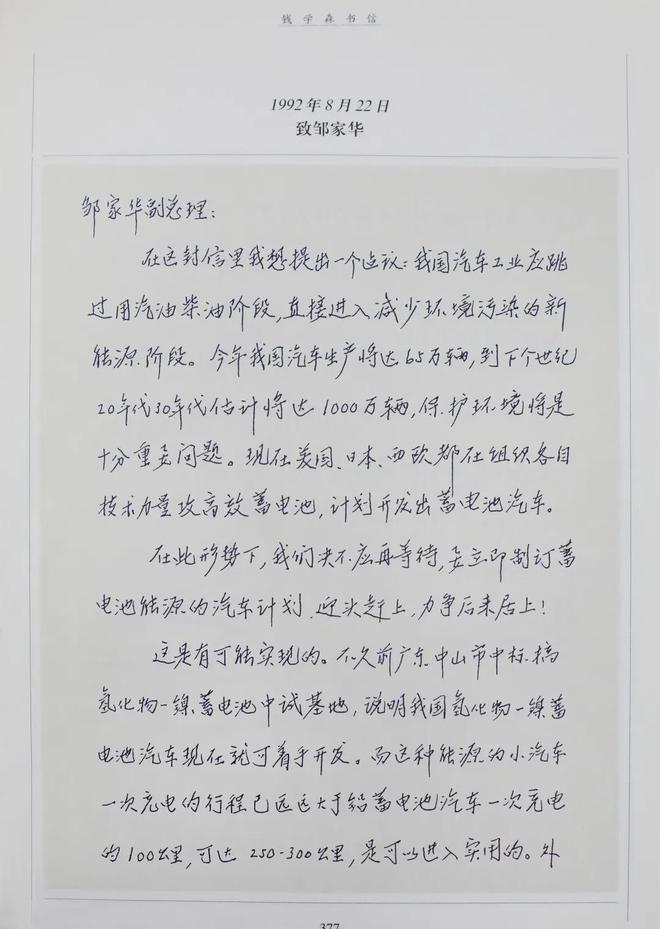 钱学森书信
1992年8月22日
致邹家华
邹家华副总理：
在这封信里我想提出一个建议：我国汽车工业应跳
过用汽油柴油阶段，直接进入减少环境污染的新
能源阶段。今年我国汽车生产将达65万辆，到下个世纪
20年代30年代估计将达1000万辆，保护环境将是
十分重要问题。现在美国、日本、西欧都在组织各自
技术力量攻高效蓄电池，计划开发出蓄电池汽车。
在此形势下，我们决不应再等待，要立即制订蓄
电池能源的汽车计划，迎头赶上，力争后来居上！
这是有可能实现的。不久前广东中山市中标搞
氢化物-镍蓄电池中试基地，说明我国氢化物-镍蓄
电池汽车现在就可着手开发。而这种能源的小汽车
一次充电的行程已远远大于铅蓄电池汽车一次充电
的100公里，可达250-300公里，是可以进入实用的。外
377